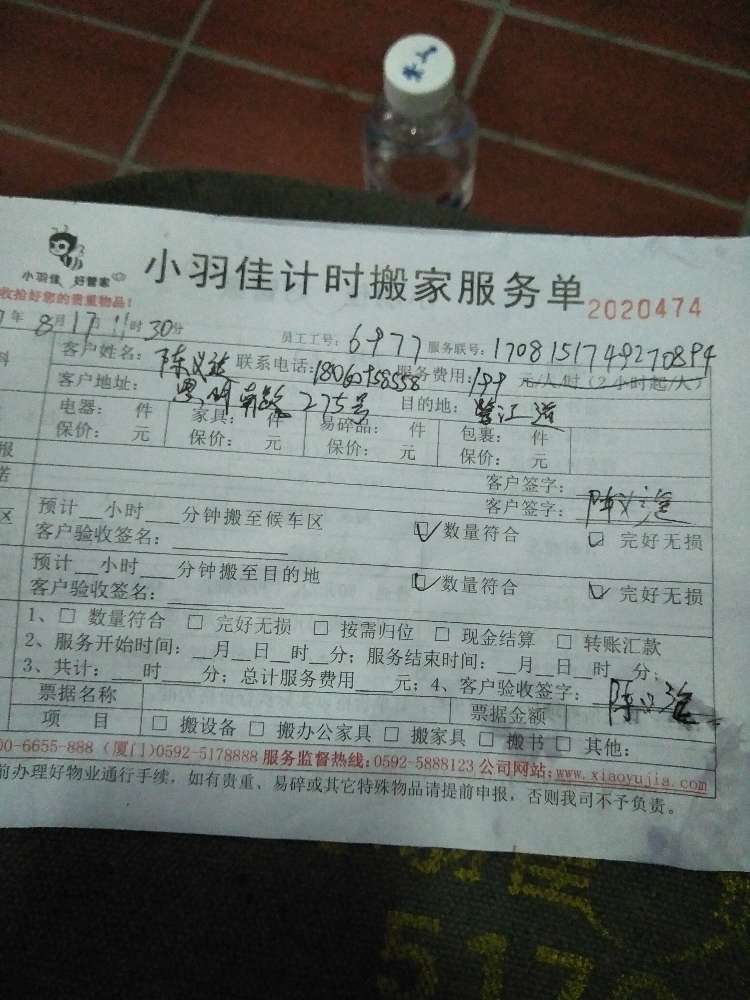 小羽佳 好管家
小羽佳计时搬家服务单 2020474
收拾好您的贵重物品！
年 8月17日 11时30分 员工工号：6977 服务联号：
客户姓名：陈 联系电话： 服务费用： 元/人/时（2小时起/人）
客户地址： 275号 目的地：
电器： 件 家具： 件 易碎品： 件 包裹： 件
保价： 元 保价： 元 保价： 元 保价： 元
客户签字：
客户签字：陈
预计__小时___分钟搬至候车区 数量符合 完好无损
客户验收签名：
预计__小时___分钟搬至目的地 数量符合 完好无损
客户验收签名：
1、□ 数量符合 □ 完好无损 □ 按需归位 □ 现金结算 □ 转账汇款
2、服务开始时间：__月__日__时__分；服务结束时间：__月__日__时__分；
3、共计：___时___分；总计服务费用___元；4、客户验收签字：陈
票据名称 票据金额
项 目 □ 搬设备 □ 搬办公家具 □ 搬家具 □ 搬书 □ 其他：
00-6655-888（厦门）0592-5178888 服务监督热线：0592-5888123 公司网站：www.xiaoyujia.com
前办理好物业通行手续，如有贵重、易碎或其它特殊物品请提前申报，否则我司不予负责。